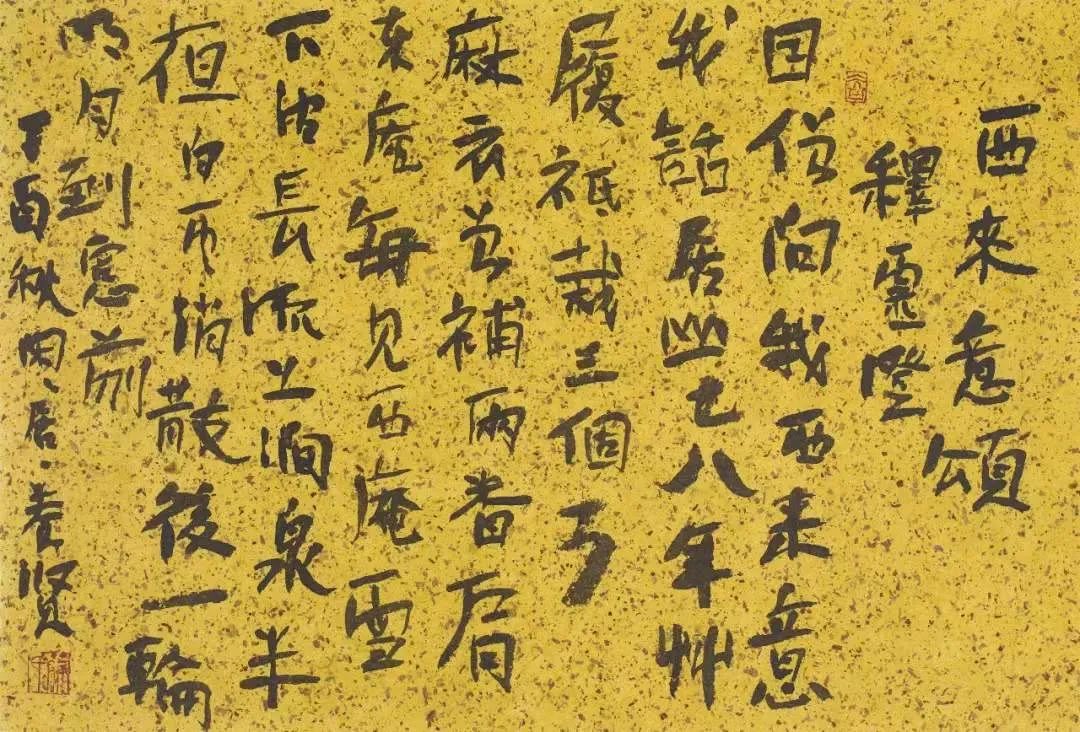 西來意頌
釋霊澄
因僧问我西来意
我話居山七八年艸
履祗栽三個耳
麻衣曾補兩番肩
东庵每见西庵雪
下涉長流上澗泉半
夜白雲消散後一輪
明月到窓前
丁酉秋 贤